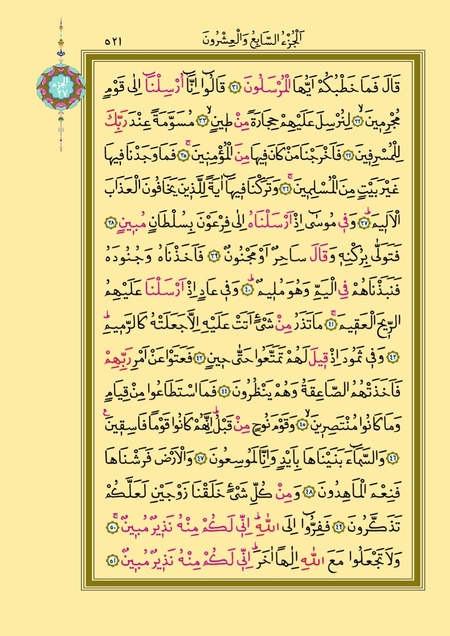 اَلْجُزْءُ السَّابِعُ وَالْعِشْرُونَ
٥٢١
قَالَ فَمَا خَطْبُكُمْ اَيُّهَا الْمُرْسَلُونَ ﴿٣١﴾ قَالُٓوا اِنَّٓا اُرْسِلْنَٓا اِلٰى قَوْمٍ
مُجْرِمٖينَۙ ﴿٣٢﴾ لِنُرْسِلَ عَلَيْهِمْ حِجَارَةً مِنْ طٖينٍۙ ﴿٣٣﴾ مُسَوَّمَةً عِنْدَ رَبِّكَ
لِلْمُسْرِفٖينَ ﴿٣٤﴾ فَاَخْرَجْنَا مَنْ كَانَ فٖيهَا مِنَ الْمُؤْمِنٖينَۚ ﴿٣٥﴾ فَمَا وَجَدْنَا فٖيهَا
غَيْرَ بَيْتٍ مِنَ الْمُسْلِمٖينَۚ ﴿٣٦﴾ وَتَرَكْنَا فٖيهَٓا اٰيَةً لِلَّذٖينَ يَخَافُونَ الْعَذَابَ
الْاَلٖيمَؕ ﴿٣٧﴾ وَفٖى مُوسٰٓى اِذْ اَرْسَلْنَاهُ اِلٰى فِرْعَوْنَ بِسُلْطَانٍ مُبٖينٍ ﴿٣٨﴾
فَتَوَلّٰى بِرُكْنِهٖ وَقَالَ سَاحِرٌ اَوْ مَجْنُونٌ ﴿٣٩﴾ فَاَخَذْنَاهُ وَجُنُودَهُ
فَنَبَذْنَاهُمْ فِى الْيَمِّ وَهُوَ مُلٖيمٌؕ ﴿٤٠﴾ وَفٖى عَادٍ اِذْ اَرْسَلْنَا عَلَيْهِمُ
الرّٖيحَ الْعَقٖيمَۚ ﴿٤١﴾ مَا تَذَرُ مِنْ شَىْءٍ اَتَتْ عَلَيْهِ اِلَّا جَعَلَتْهُ كَالرَّمٖيمِؕ
﴿٤٢﴾ وَفٖى ثَمُودَ اِذْ قٖيلَ لَهُمْ تَمَتَّعُوا حَتّٰى حٖينٍ ﴿٤٣﴾ فَعَتَوْا عَنْ اَمْرِ رَبِّهِمْ
فَاَخَذَتْهُمُ الصَّاعِقَةُ وَهُمْ يَنْظُرُونَ ﴿٤٤﴾ فَمَا اسْتَطَاعُوا مِنْ قِيَامٍ
وَمَا كَانُوا مُنْتَصِرٖينَۙ ﴿٤٥﴾ وَقَوْمَ نُوحٍ مِنْ قَبْلُؕ اِنَّهُمْ كَانُوا قَوْمًا فَاسِقٖينَ۟
﴿٤٦﴾ وَالسَّمَٓاءَ بَنَيْنَاهَا بِاَيْدٍ وَاِنَّا لَمُوسِعُونَ ﴿٤٧﴾ وَالْاَرْضَ فَرَشْنَاهَا
فَنِعْمَ الْمَاهِدُونَ ﴿٤٨﴾ وَمِنْ كُلِّ شَىْءٍ خَلَقْنَا زَوْجَيْنِ لَعَلَّكُمْ
تَذَكَّرُونَ ﴿٤٩﴾ فَفِرُّٓوا اِلَى اللّٰهِؕ اِنّٖى لَكُمْ مِنْهُ نَذٖيرٌ مُبٖينٌۚ ﴿٥٠﴾
وَلَا تَجْعَلُوا مَعَ اللّٰهِ اِلٰهًا اٰخَرَؕ اِنّٖى لَكُمْ مِنْهُ نَذٖيرٌ مُبٖينٌۚ ﴿٥١﴾